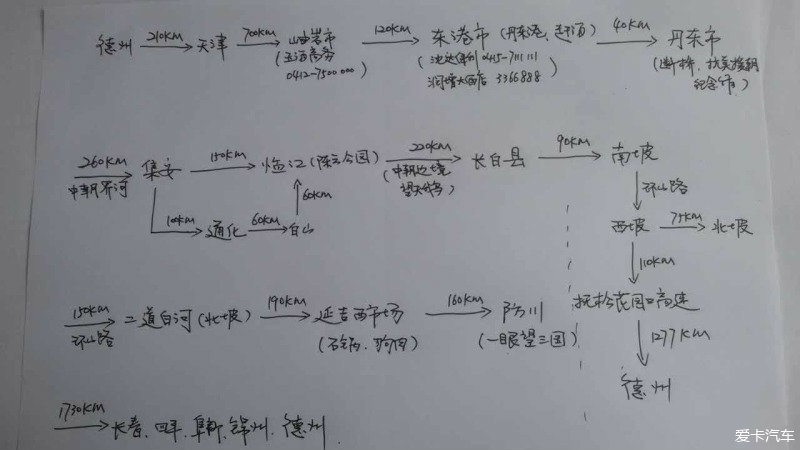 德州 210KM 天津 700KM 120KM 东港市 (丹东港、赶海) 40KM 丹东市
(五洲商务 0412-7500000) (沈达便利 0415-7111111 润增大酒店 3366888) (断桥、抗美援朝纪念馆)
260KM 集安 150KM 临江 (陈云公园) 220KM 长白县 90KM 南坡
中朝界河 (中朝边境 60KM 环山路
100KM 通化 60KM 白山 西坡 75KM 北坡
110KM
150KM 二道白河 (北坡) 190KM 延吉西市场 160KM 防川 抚松花园口高速
环山路 (石锅、狗肉) (一眼望三国) 1277KM
德州
1730KM 长春、四平、阜新、锦州、德州
爱卡汽车